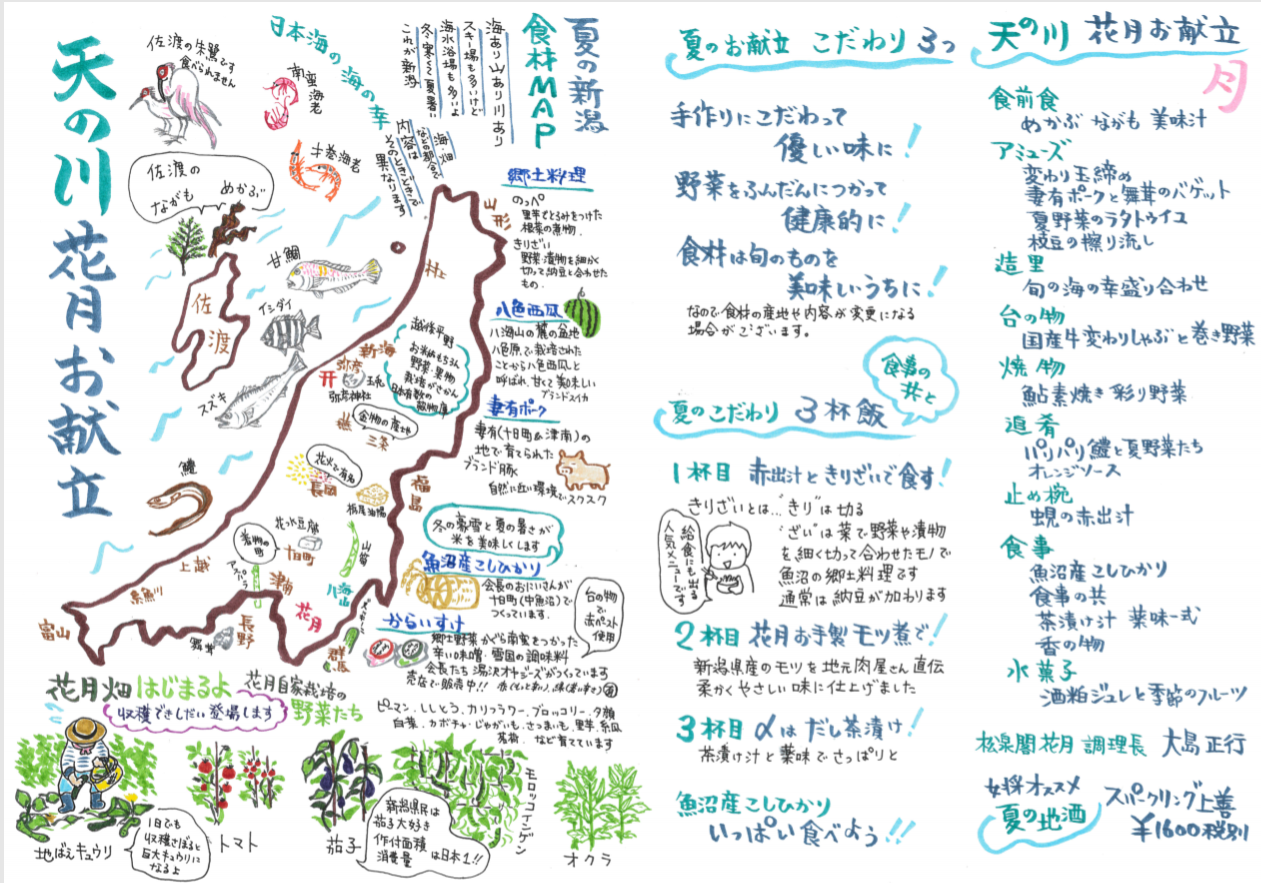 天の川 花月お献立
佐渡の朱鷺です
食べられません
日本海の海の幸
南蛮海老
牛巻海老
夏の新潟
食材MAP
海あり山あり川あり
スキー場も多いけど
海水浴場も多いよ
冬寒くて夏暑い
これが新潟
海・畑
などの都合で
内容は
そのときどきで
異なります
佐渡の
ながも めかぶ
甘鯛
イシダイ
スズキ
鱧
佐渡
山形
村上
新潟
越後平野
お米はもちろん
野菜・果物
栽培がさかん
日本有数の
穀物庫
弥彦
玉兎
弥彦神社
燕
三条
金物の産地
花火で有名
長岡
栃尾油揚
福島
着物の町
花水豆腐
十日町
アスパラ
津南
山菜
八海山
花月
上越
糸魚川
富山
長野
舞茸
群馬
郷土料理
のっぺ
里芋でとろみをつけた
根菜の煮物
きりざい
野菜・漬物を細かく
切って納豆と合わせた
もの
八色西瓜
八海山の麓の盆地
八色原で栽培された
ことから八色西瓜と
呼ばれ、甘くて美味しい
ブランドスイカ
妻有ポーク
妻有(十日町&津南)の
地で育てられた
ブランド豚
自然に近い環境でスクスク
冬の豪雪と夏の暑さが
米を美味しくします
魚沼産こしひかり
会長のおにいさんが
十日町(中魚沼)で
つくっています.
台の物
で
赤ペースト
使用
からいすけ
郷土野菜かぐら南蛮をつかった
辛い味噌・雪国の調味料
会長たち 湯沢オヤジーズがつくっています
売店で販売中!!
花月畑はじまるよ
収穫できしだい登場します
花月自家栽培の
野菜たち
ピーマン、ししとう、カリフラワー、ブロッコリー、夕顔
白菜、カボチャ、じゃがいも、さつまいも、里芋、糸瓜
茗荷、など育てています
地ばえキュウリ
1日でも
収穫さぼると
巨大キュウリに
なるよ
トマト
茄子
新潟県民は
茄子大好き
作付面積
消費量 は日本1!!
モロッコインゲン
オクラ
夏のお献立 こだわり 3つ
手作りにこだわって
優しい味に!
野菜をふんだんにつかって
健康的に!
食材は旬のものを
美味しいうちに!
なので食材の産地や内容が変更になる
場合がございます。
食事の
共と
夏のこだわり 3杯飯
1杯目 赤出汁ときりざいで食す!
きりざいとは…"きり"は切る
"ざい"は菜で野菜や漬物
を細く切って合わせたモノで
魚沼の郷土料理です
通常は納豆が加わります
給食にも出る
人気メニューです
2杯目 花月お手製モツ煮で!
新潟県産のモツを地元肉屋さん直伝
柔かくやさしい味に仕上げました
3杯目 〆はだし茶漬け!
茶漬け汁と薬味でさっぱりと
魚沼産こしひかり
いっぱい食べよう!!
天の川 花月お献立
月
食前食
めかぶ ながも 美味汁
アミューズ
変わり玉締め
妻有ポークと舞茸のバゲット
夏野菜のラタトゥイユ
枝豆の擦り流し
造里
旬の海の幸盛り合わせ
台の物
国産牛変わりしゃぶと巻き野菜
焼物
鮎素焼き 彩り野菜
追肴
パリパリ鱧と夏野菜たち
オレンジソース
止め椀
蜆の赤出汁
食事
魚沼産こしひかり
食事の共
茶漬け汁 薬味一式
香の物
水菓子
酒粕ジュレと季節のフルーツ
松泉閣花月 調理長 大島正行
女将オススメ
夏の地酒
スパークリング上善
¥1600税別